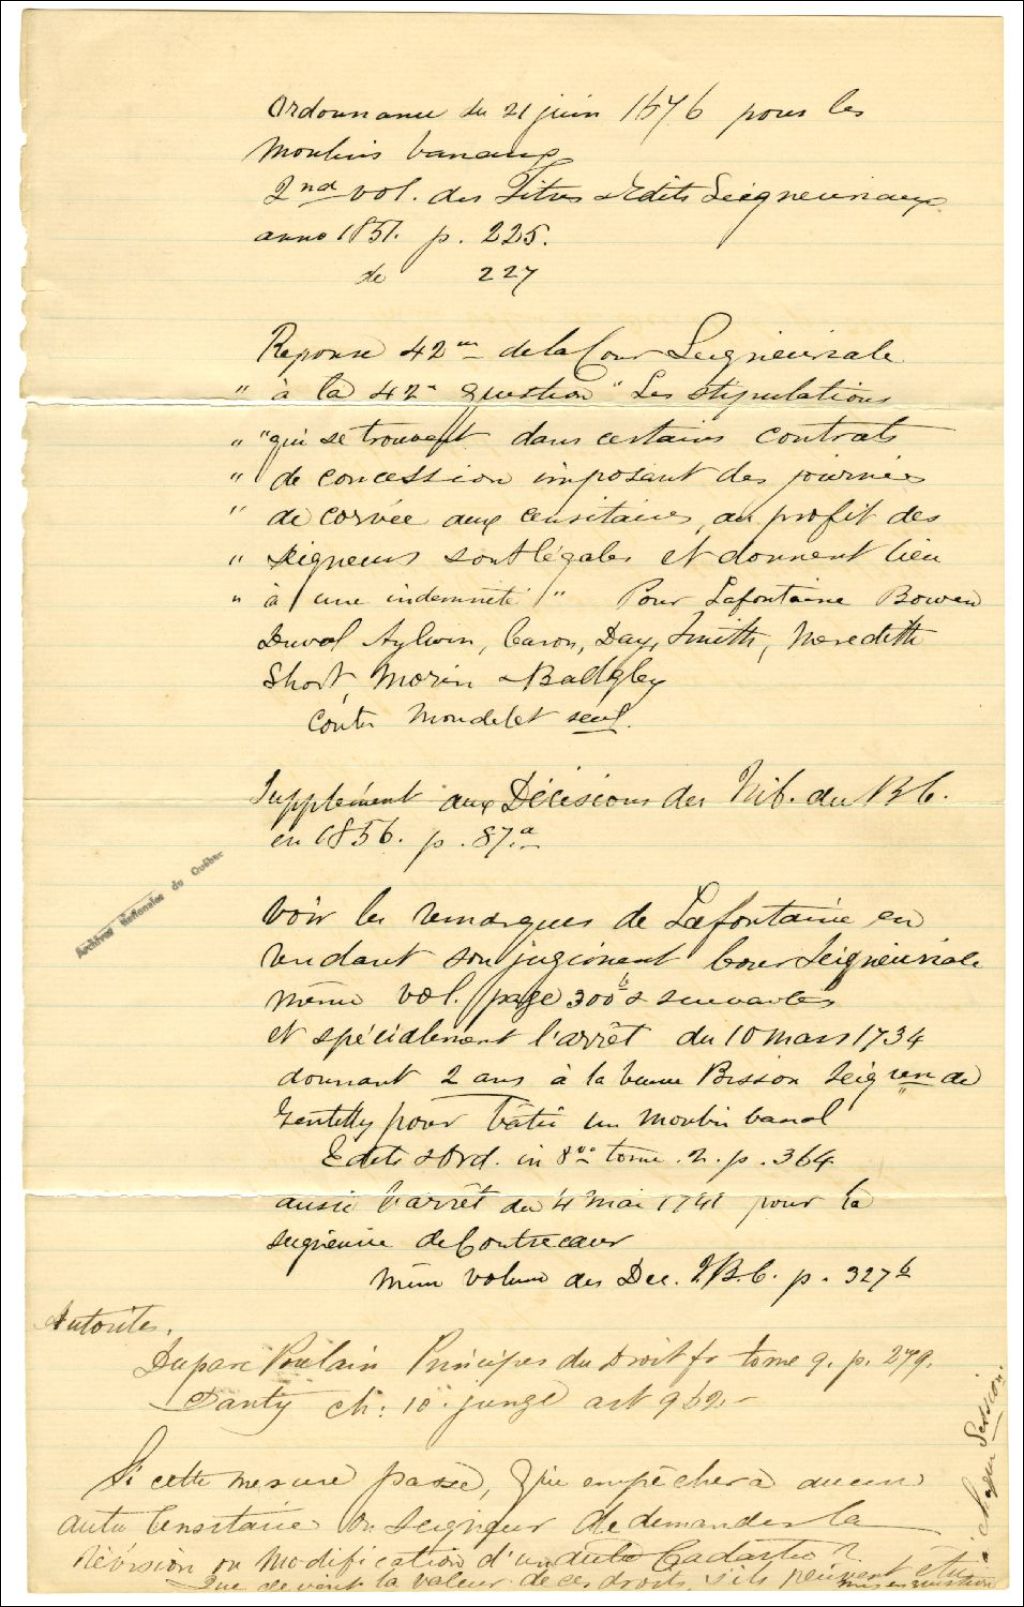 Ordonnance du 21 juin 1676 pour les
Moulins banaux
2nd vol. des Titres & Edits Seigneuriaux
anno 1851. p. 225.
de 227
Reponse 42me de la Cour Seigneuriale
" à la 42e question " Les stipulations
" "qui se trouvent dans certains contrats
" de concession imposant des journées
" de corvée aux censitaires, au profit des
" Seigneurs sont légales et donnent lieu
" à une indemnité " Pour Lafontaine Bowen
Duval Aylwin, Caron, Day, Smith, Meredith
Short, Morin & Badgley
Contre Mondelet seul.
Supplément aux Décisions des Trib. du B C.
en 1856. p. 87.a
Voir les remarques de Lafontaine en
rendant son jugement Cour Seigneuriale
même vol. page 300b & suivantes
et spécialement l'arrêt du 10 mars 1734
donnant 2 ans à la veuve Bisson Seigren de
Gentilly pour bâtir un moulin banal
Edits & Ord. in 8vo tome 2. p. 364
aussi l'arrêt du 4 mai 1741 pour la
seigneurie de Contrecoeur
même volume des Dec. B.C. p. 327b
Autorités.
Duparc Poulain Principes du Droit fr tome 9. p. 279.
Danty ch: 10 art 962.
Si cette mesure passe, Qui empêchera aucun
autre Censitaire ou Seigneur de demander la
Révision ou modification d'un autre Cadastre?
Que devient la valeur de ces droits, s'ils peuvent être
mis en question
à chaque Session.
Archives Nationales du Québec